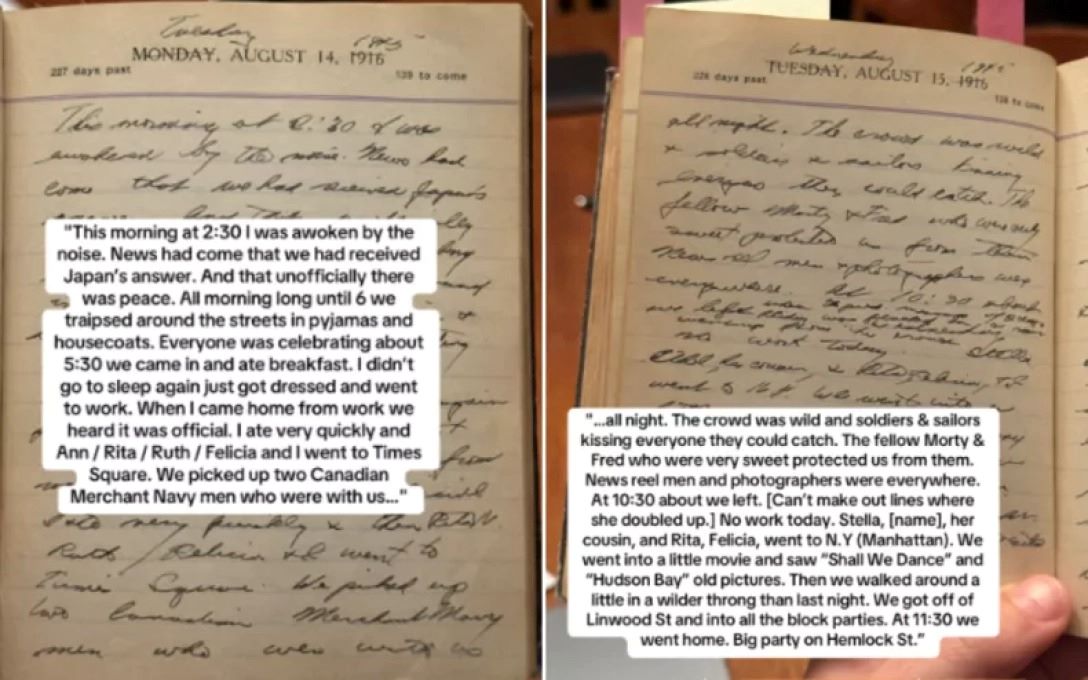 Tuesday 1945
MONDAY, AUGUST 14, 1916
227 days past 139 to come
This morning at 2:30 I was
awakened by the noise. News had
come that we had received Japan's
"This morning at 2:30 I was awoken by the
noise. News had come that we had received
Japan's answer. And that unofficially there
was peace. All morning long until 6 we
traipsed around the streets in pyjamas and
housecoats. Everyone was celebrating about
5:30 we came in and ate breakfast. I didn't
go to sleep again just got dressed and went
to work. When I came home from work we
heard it was official. I ate very quickly and
Ann / Rita / Ruth / Felicia and I went to Times
Square. We picked up two Canadian
Merchant Navy men who were with us..."
I ate very quickly & then Rita
Ruth / Felicia & I went to
Times Square. We picked up
two Canadian Merchant Navy
men who were with us
Wednesday 1945
TUESDAY, AUGUST 15, 1916
228 days past 138 to come
all night. The crowd was wild
& soldiers & sailors kissing
everyone they could catch. The
fellow Morty & Fred who were very
sweet protected us from them
News reel men & photographers were
everywhere. At 10:30 about
we left
no work today. Stella
her cousin, & Rita, Felicia,
went to N.Y. We went into
"...all night. The crowd was wild and soldiers & sailors
kissing everyone they could catch. The fellow Morty &
Fred who were very sweet protected us from them.
News reel men and photographers were everywhere.
At 10:30 about we left. [Can't make out lines where
she doubled up.] No work today. Stella, [name], her
cousin, and Rita, Felicia, went to N.Y (Manhattan). We
went into a little movie and saw "Shall We Dance" and
"Hudson Bay" old pictures. Then we walked around a
little in a wilder throng than last night. We got off of
Linwood St and into all the block parties. At 11:30 we
went home. Big party on Hemlock St."